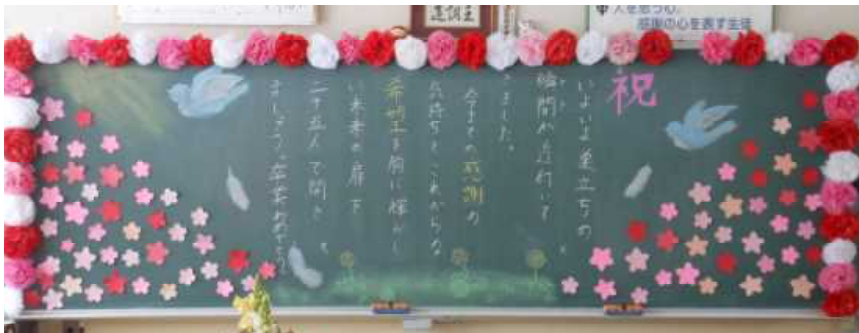 人を思う心、
感謝の心を表す生徒
祝
いよいよ巣立ちの
瞬間が近付いて
きました。
今までの感謝の
気持ちとこれからの
希望を胸に輝かし
い未来の扉を
二十五人で開き
ましょう。卒業おめでとう